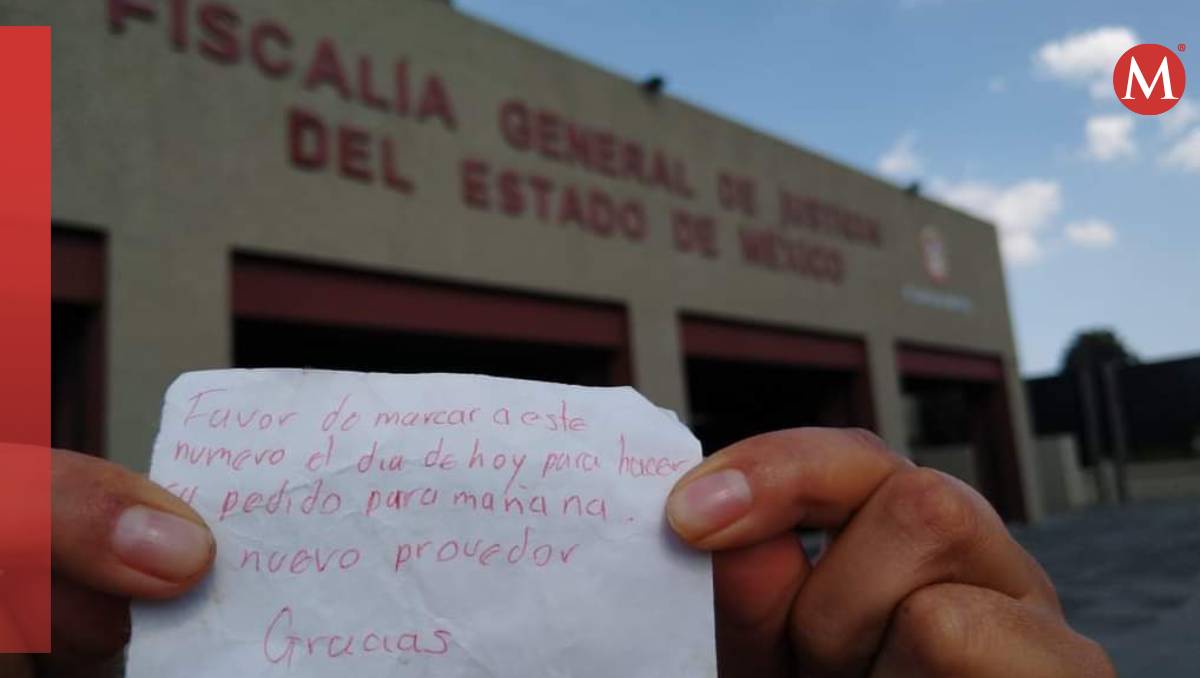 FISCALÍA GENERAL DE JUSTICIA
DEL ESTADO DE MÉXICO
M
Favor de marcar a este
numero el dia de hoy para hacer
su pedido para mañana.
nuevo provedor
Gracias